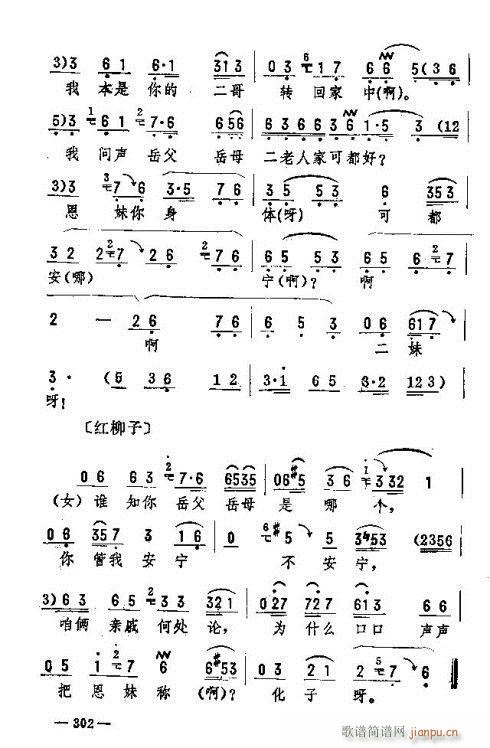 3)3 6 1 6·1 31 3 | 0 3 6 1 2 7 6 6 5(3 6
我 本是 你的 二哥 转 回家 中(啊)。
5)3 6 1 7·6 6 656 | 6 3 6 6 3 6 1·5 3 (12
我 问声 岳父 岳母 二老人家可都好?
3)3 7 6 3·5 7 6 | 3 5 5 3 6 353
恩 妹你 身 体(呀) 可 都
3 2 2 7 2 6 7 6 | 6 5 5 3 6 5 7
安(哪) 宁(啊)? 啊
2 — 2 6 7 6 | 6 5 3 0 6 61 7
啊 二 妹
3· (5 3 6 1 2 | 3·1 6 5 3·2 12 3)
呀!
〔红柳子〕
0 6 6 3 7·6 6535 | 06 5 6 3 332 1
(女)谁 知你 岳父 岳母 是 哪 个,
0 6 35 7 3 1 7 6 | 0 5 5 3453 (2356
你 管我 安宁 不 安宁,
3) 6 3 6 5 3 3 32 1 | 0 27 72 7 61 3 6 6
咱俩 亲戚 何处 论, 为 什么 口口 声声
0 5 1 7 3 3 6 653 | 5 35 7 6 0
把 恩妹 称 (啊)? 化子 呀。
— 302 —
歌谱简谱网
jianpu.cn